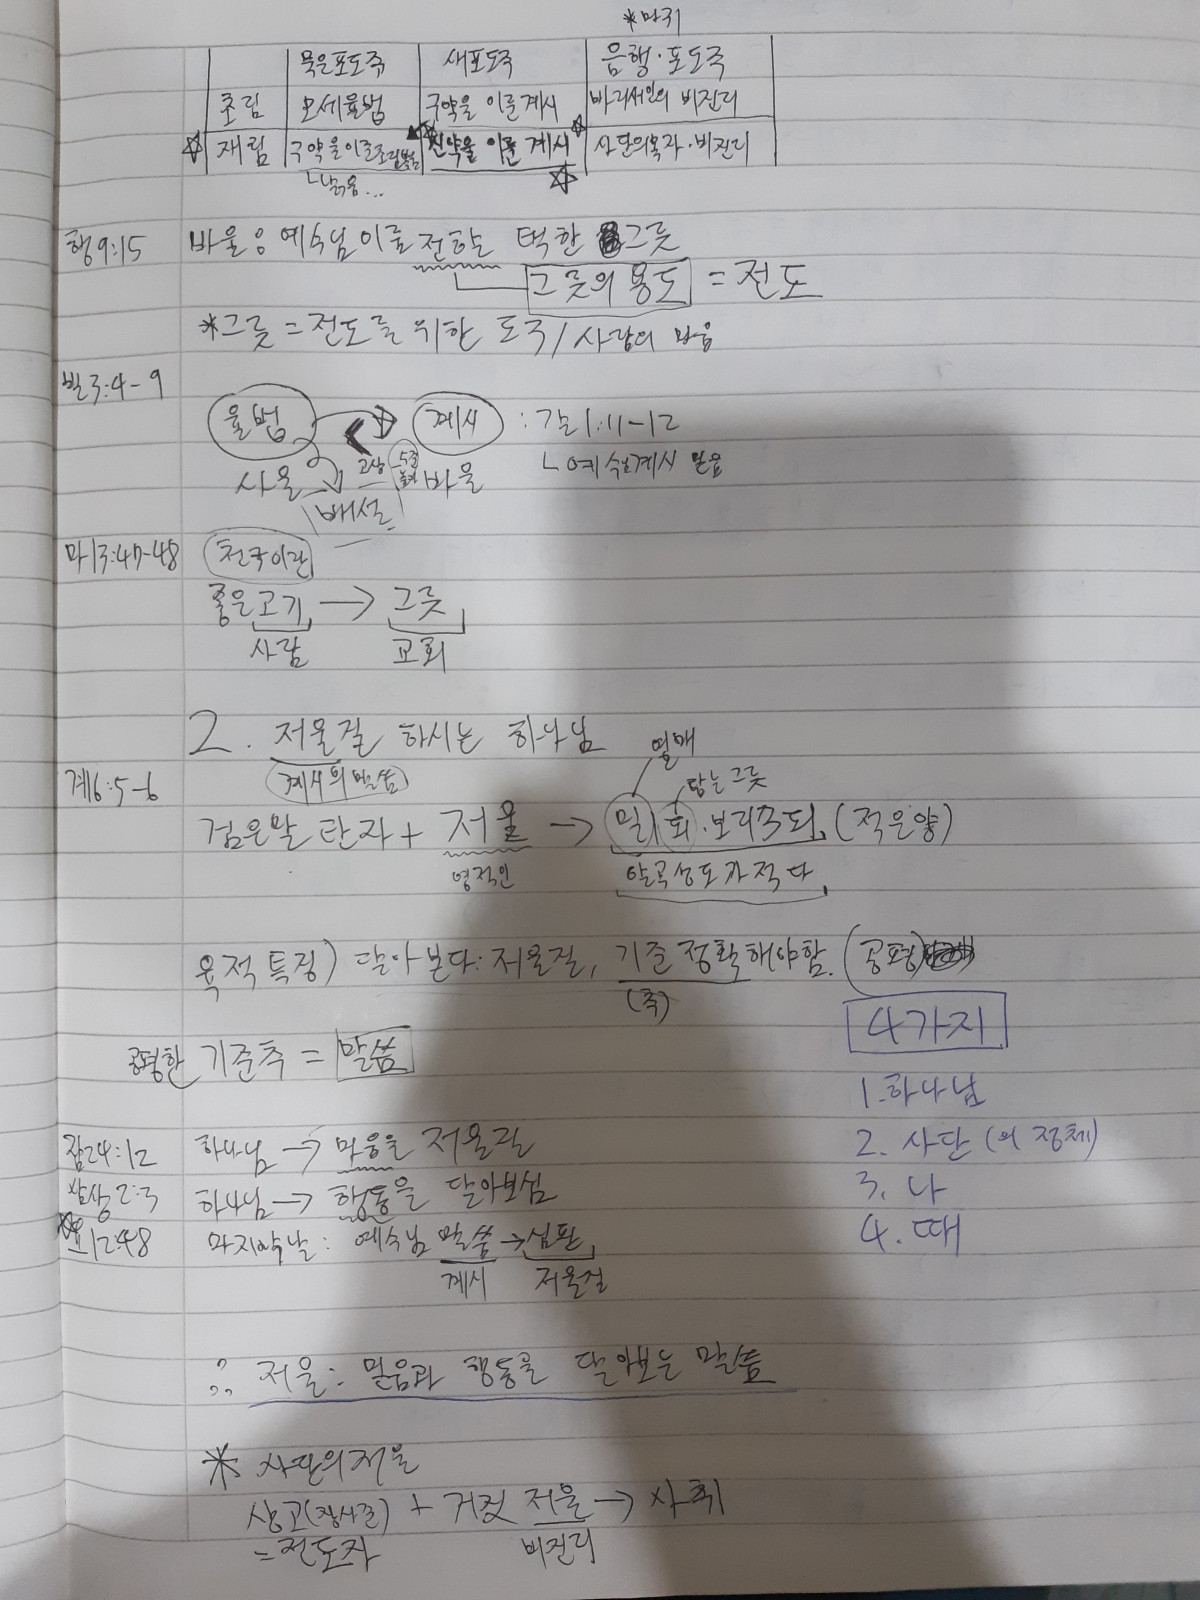 *마귀
묵은포도주 새포도주 음행·포도주
초림 모세율법 구약을 이룬 계시 바리새인의 비진리
☆ 재림 구약을이룬초림복음 신약을 이룬 계시 사단의목자·비진리
ㄴ낡음...
행9:15 바울은 예수님 이름 전하는 택한 그릇
그릇의 용도 = 전도
*그릇 = 전도를 위한 도구/사람의 마음
빌3:4-9
율법 계시 : 갈1:11-12
ㄴ예수님계시 받음
사울 고상 바울
배설
마13:47-48 천국이란
좋은고기 → 그릇
사람 교회
2. 저울질 하시는 하나님
계시의 말씀
열매
담는 그릇
계6:5-6
검은말 탄자 + 저울 → 밀1되·보리3되 (적은양)
영적인 알곡성도가적다
육적 특징) 달아본다: 저울질, 기준 정확해야함. (공평)
(추)
4가지
공평한 기준추 = 말씀
1. 하나님
잠24:12 하나님 → 마음을 저울질
2. 사단 (의 정체)
삼상2:3 하나님 → 행동을 달아보심
3. 나
☆요12:48 마지막날: 예수님 말씀→심판
4. 때
계시 저울질
∴ 저울: 믿음과 행동을 달아보는 말씀
* 사단의저울
상고(장사군) + 거짓 저울 → 사취
=전도자 비진리